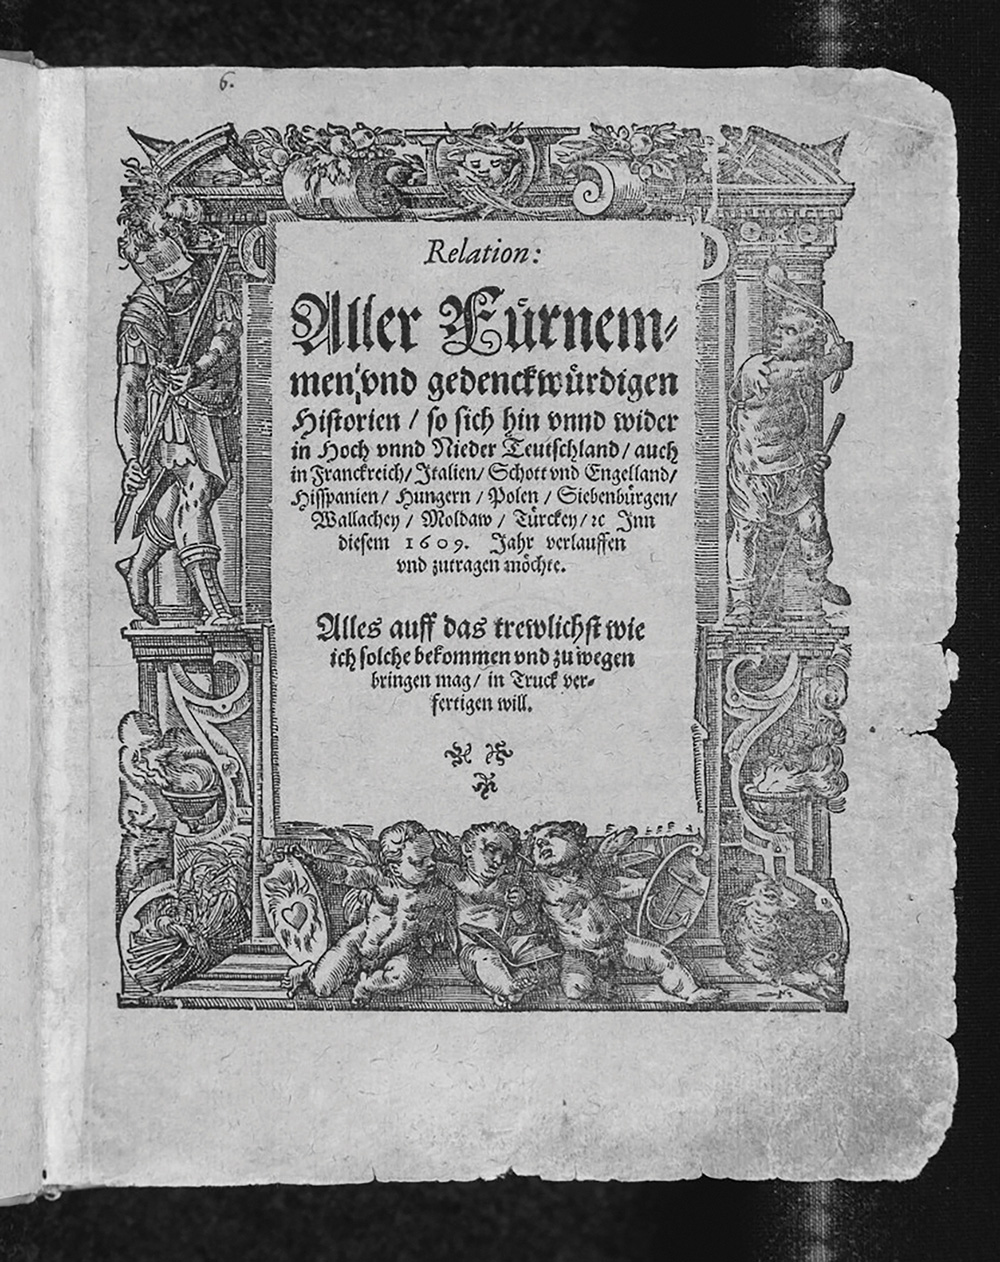 6.
Relation:
Aller Fürnem-
men/ vnd gedenckwürdigen
Historien / so sich hin vnnd wider
in Hoch vnnd Nieder Teutschland/ auch
in Franckreich/ Italien/ Schott vnd Engelland/
Hisspanien/ Hungern / Polen / Siebenbürgen/
Wallachey / Moldaw / Türckey/ ꝛc Inn
diesem 1609. Jahr verlauffen
vnd zutragen möchte.
Alles auff das trewlichst wie
ich solche bekommen vnd zu wegen
bringen mag/ in Truck ver-
fertigen will.